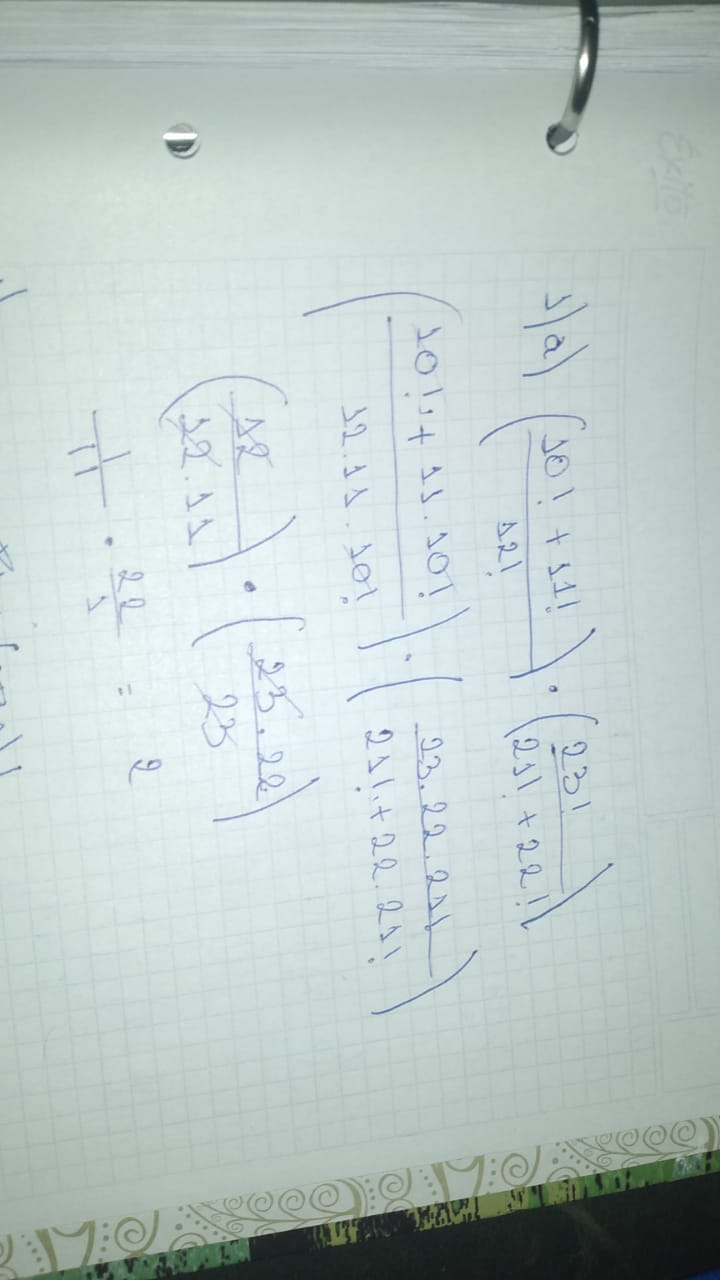 Éxito
1) a) (10! + 11! / 12!) · (23! / 21! + 22!)
(10! + 11 . 10! / 12 . 11 . 10!) · (23 . 22 . 21! / 21! + 22 . 21!)
(12 / 12 . 11) · (23 . 22 / 23)
1 / 11 · 22 / 1 = 2